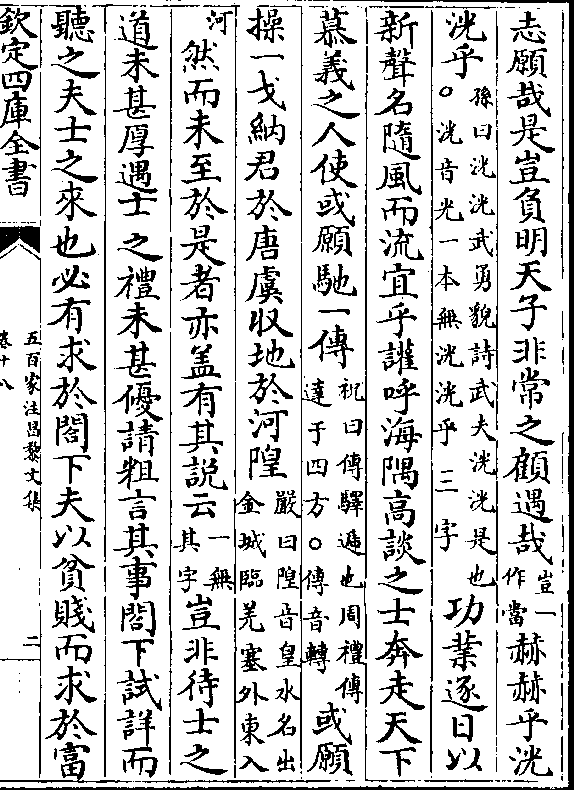 志願哉是豈負明天子非常之顧遇哉豈一作當赫赫乎洸
洸乎孫曰洸洸武勇貌詩武夫洸洸是也○洸音光一本無洸洸乎三字功業逐日以
新聲名隨風而流宜乎讙呼海隅高談之士奔走天下
慕義之人使或願馳一傳祝曰傳驛遞也周禮傳達于四方○傳音轉或願
操一戈納君於唐虞収地於河隍嚴曰隍音皇水名出金城臨羌塞外東入
河然而未至於是者亦盖有其説云一無其字豈非待士之
道未甚厚遇士之禮未甚優請粗言其事閤下試詳而
聽之夫士之來也必有求於閤下夫以貧賤而求於富
欽定四庫全書
五百家注昌黎文集
卷十八
二